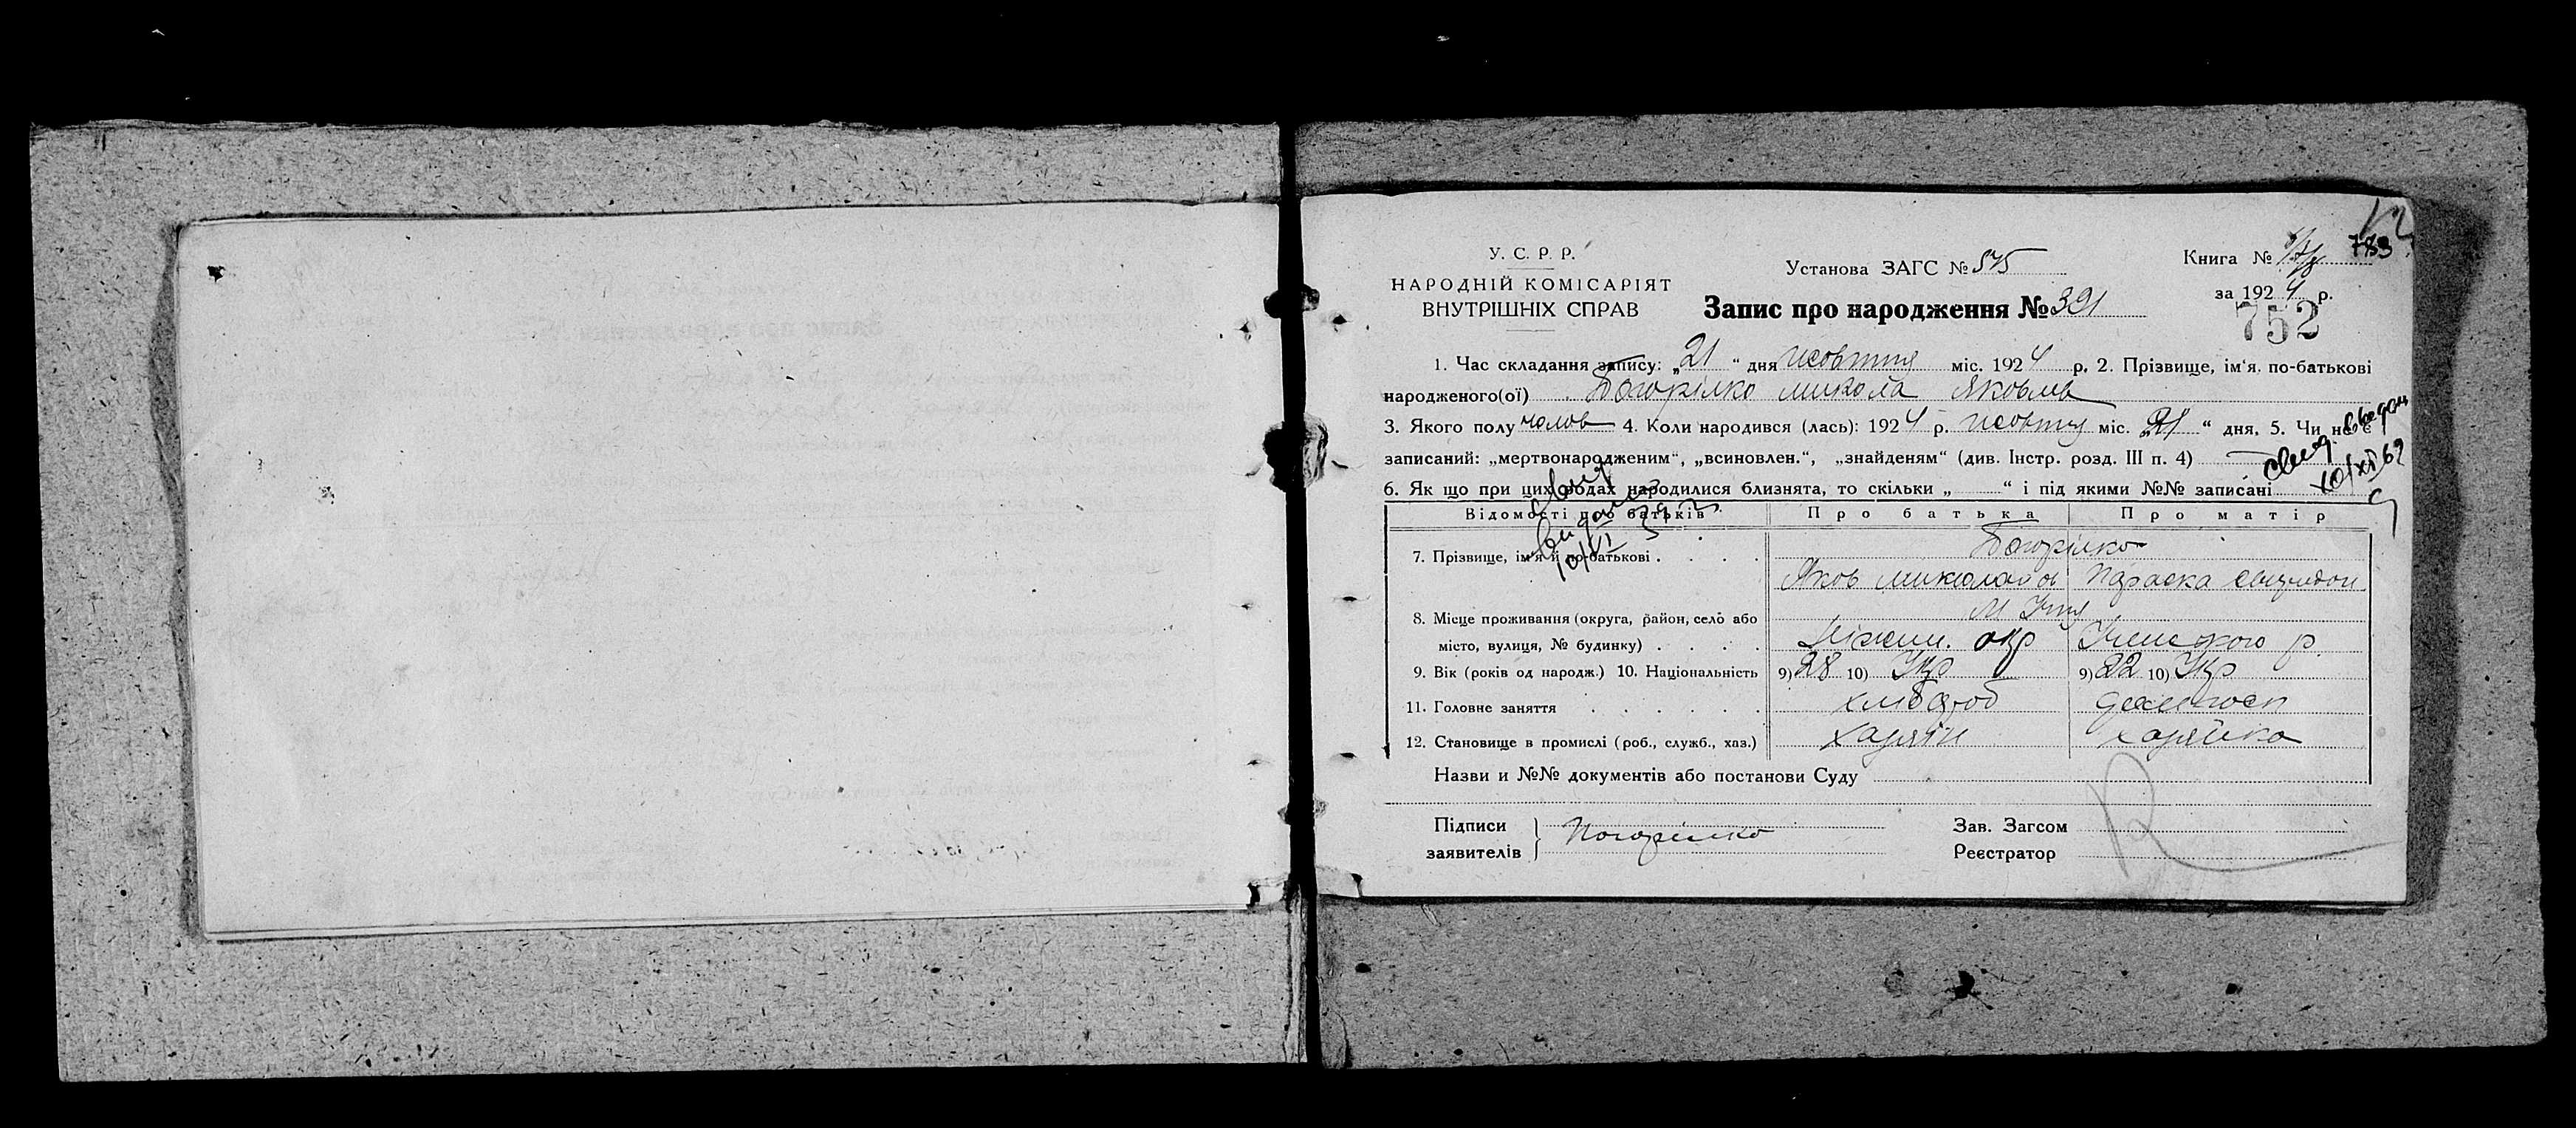 У. С. Р. Р.
НАРОДНІЙ КОМІСАРІЯТ
ВНУТРІШНІХ СПРАВ
Установа ЗАГС № 545
Книга № 783
за 1924 р.
752
Запис про народження № 391
1. Час складання запису: „21“ дня жовтня міс. 1924 р. 2. Прізвище, ім'я, по-батькові
народженого(ої) Погорілко Микола Яковлев
3. Якого полу чолов 4. Коли народився (лась): 1924 р. жовтня міс. „21“ дня, 5. Чи не є
записаний: „мертвонародженим“, „всиновлен.“, „знайденям“ (див. Інстр. розд. III п. 4)
6. Як що при цих родах народилися близнята, то скільки „ “ і під якими №№ записані
Відомості про батьків Про батька Про матір
7. Прізвище, ім'я й по-батькові . . . . Погорілко
Яков Миколаєв Параска
8. Місце проживання (округа, район, село або
місто, вулиця, № будинку) . . . . Ніжин. окр Ічнянського р.
9. Вік (років од народж.) 10. Національність 9) 28 10) Укр 9) 22 10) Укр
11. Головне заняття . . . . . . хлібороб домогосп
12. Становище в промислі (роб., служб., хаз.) хазяїн хазяйка
Назви и №№ документів або постанови Суду
Підписи
заявителів } Погорілко
Зав. Загсом
Реєстратор